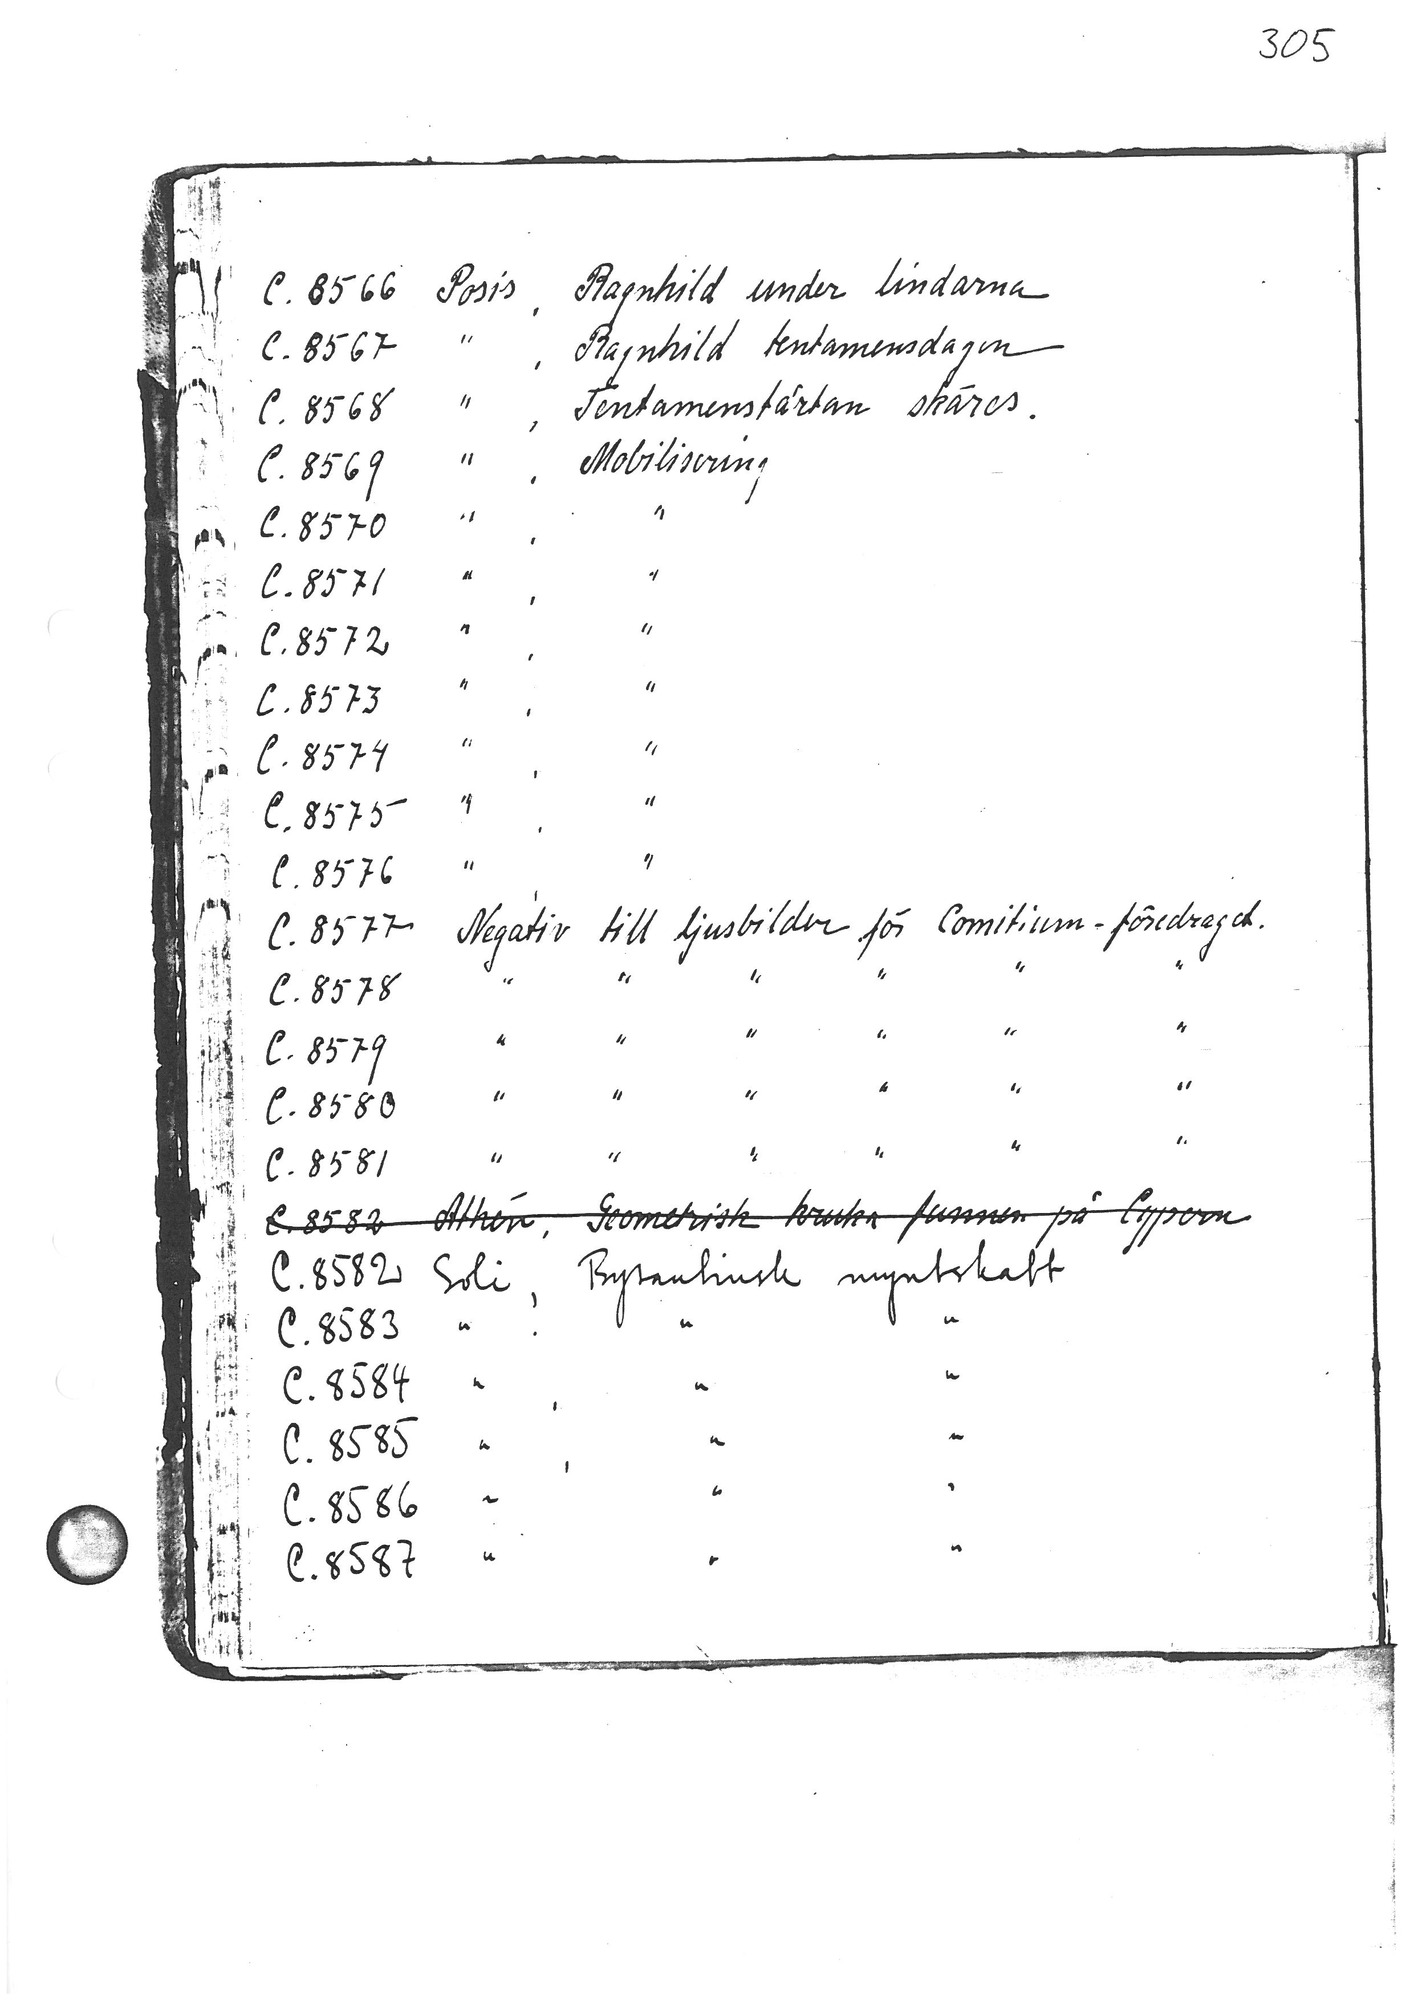 305
C. 8566 Posis, Ragnhild under lindarna
C. 8567 " , Ragnhild tentamensdagen
C. 8568 " , Tentamenstårtan skäres.
C. 8569 " , Mobilisering
C. 8570 " , "
C. 8571 " , "
C. 8572 " , "
C. 8573 " , "
C. 8574 " , "
C. 8575 " , "
C. 8576 " , "
C. 8577 Negativ till ljusbilder för Comitium-föredraget.
C. 8578 " " " " " "
C. 8579 " " " " " "
C. 8580 " " " " " "
C. 8581 " " " " " "
C. 8582 Athén, Geometrisk kruka funnen på Cypern
C. 8582 Soli, Bysantinsk myntskatt
C. 8583 " , " "
C. 8584 " , " "
C. 8585 " , " "
C. 8586 " " "
C. 8587 " " "